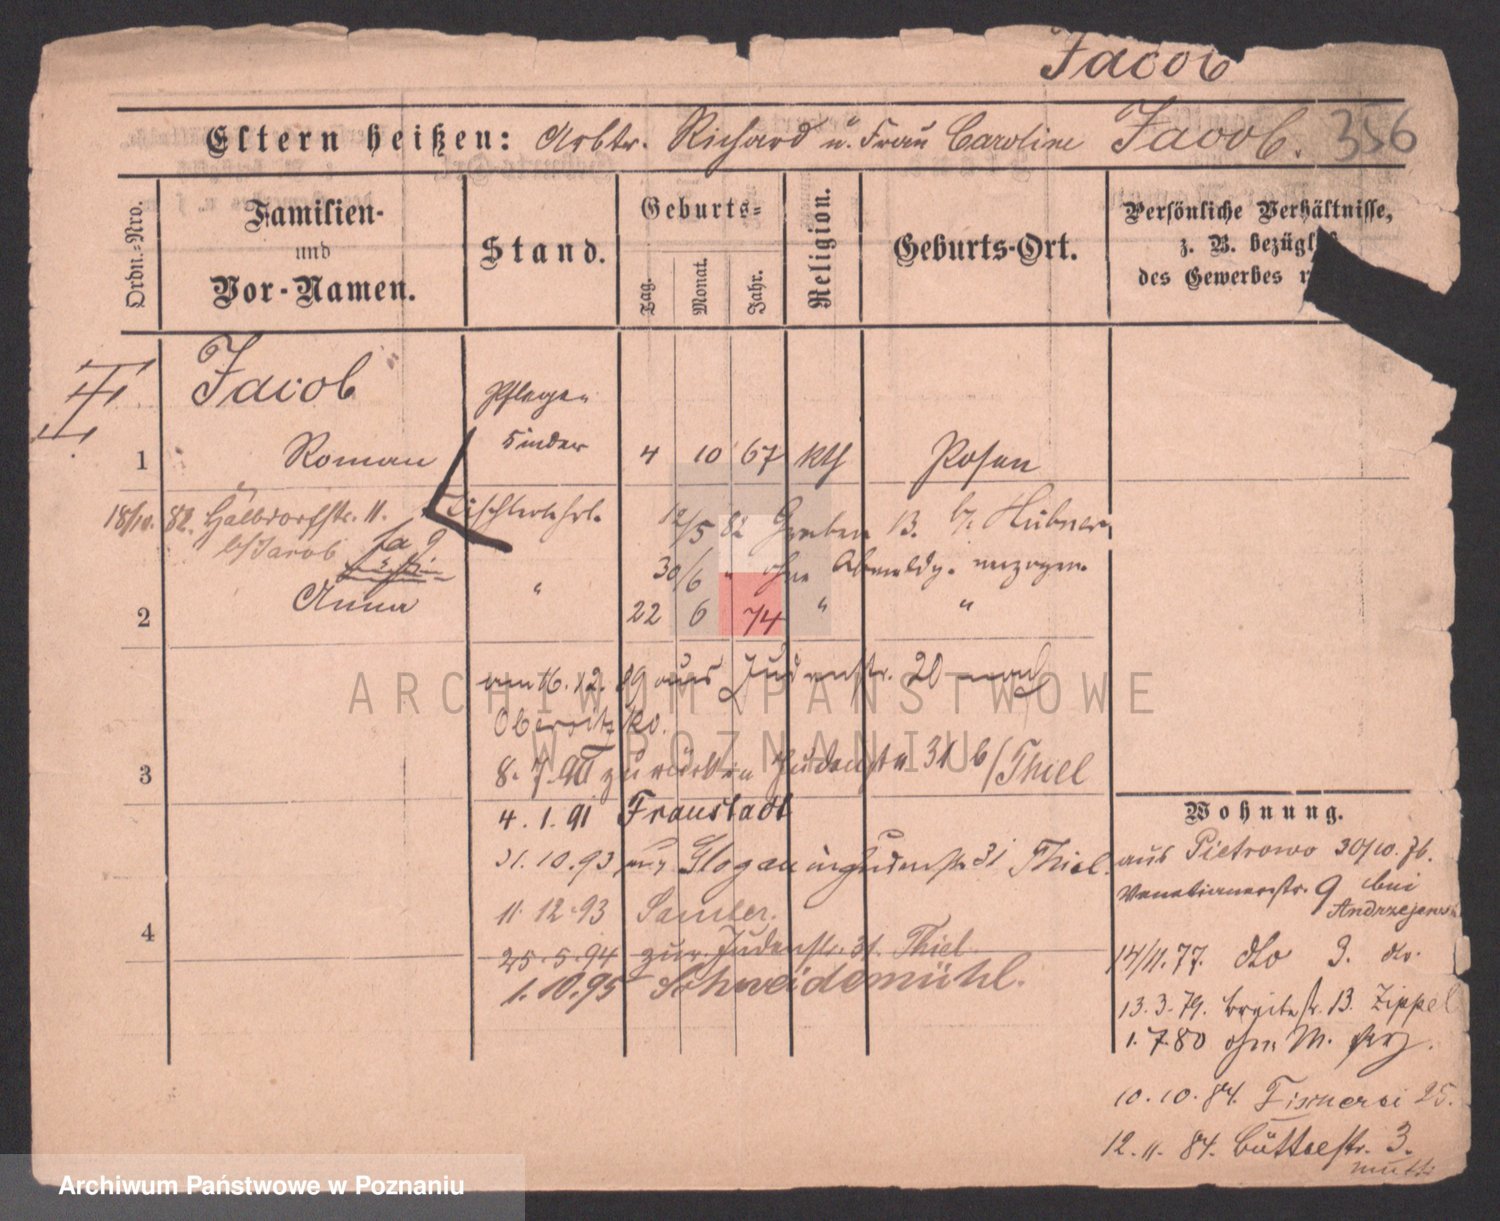 Jacob
Eltern heißen: Arbtr. Richard u. Frau Caroline Jacob. 356
Ordn.-Nro.
Familien-
und
Vor-Namen.
Stand.
Geburts-
Tag.
Monat.
Jahr.
Religion.
Geburts-Ort.
Persönliche Verhältnisse,
z. B. bezügl
des Gewerbes
Jacob
Pflege-
Kinder
1 Roman 4 10 67 kth Posen
18/10. 82. Halbdorfstr. 11. Tischlerlehrl. 12/5 82 Graben 13. b/. Hübner
b/Jacob
30/6 " ohne Abmeldg. verzogen.
2 Anna " 22 6 74 " "
am 16. 12. 89 aus Judenstr. 20 nach
3 8. 7. 90 zurück in Judenstr 31 b/Thiel
4. 1. 91 Fraustadt
31. 10. 93 aus Glogau in Judenstr 31 Thiel.
11. 12. 93 Samter.
4
25. 5. 94 zur. Judenstr. 31. Thiel.
1. 10. 95 Schneidemühl.
Wohnung.
aus Pietrowo 30/10. 76.
Venetianerstr. 9 bei
Andrzejews
14/11. 77. dto 3. do.
13. 3. 79. Breitestr. 13. Zippel
1. 7 80 ohne M. verz.
10. 10. 84. Fischerei 25.
12. 11. 84. Büttelstr. 3.
ARCHIWUM PAŃSTWOWE
W POZNANIU
Archiwum Państwowe w Poznaniu